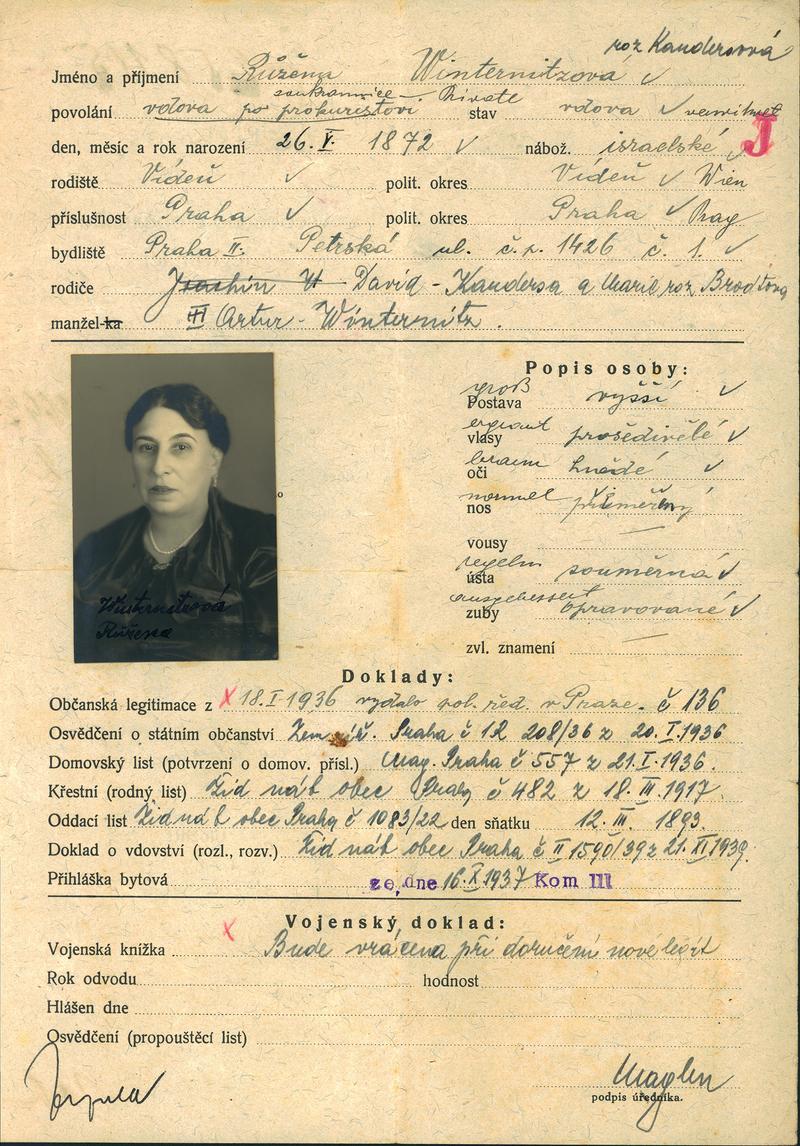 roz Kandersová
Jméno a příjmení Růžena Winternitzová ✓
soukromnice – Private
povolání vdova po prokuristovi stav vdova ✓ verwitwet
J
den, měsíc a rok narození 26. V. 1872 ✓ nábož. israelské ✓
rodiště Vídeň ✓ polit. okres Vídeň ✓ Wien
příslušnost Praha ✓ polit. okres Praha ✓ Prag
bydliště Praha II. Petrská ul. č.p. 1426 č. 1. ✓
rodiče David - Kandersa a Marie roz Brodtova
manžel-ka Artur - Winternitz.
Popis osoby:
groß
Postava vyšší ✓
ergraut
vlasy prošedivělé ✓
braun
oči hnědé ✓
normal
nos přiměřený
vousy —
regelm
ústa souměrná ✓
ausgebessert
zuby opravované ✓
zvl. znamení —
Winternitzová
Růžena
Doklady:
Občanská legitimace z x 18. I 1936 vydalo pol. řed. v Praze - č 136
Osvědčení o státním občanství Praha č 12 208/36 z 20. I. 1936
Domovský list (potvrzení o domov. přísl.) Mag. Praha č 557 z 21. I. 1936.
Křestní (rodný list) Žid náb obec Praha č 482 z 18. III. 1917.
Oddací list Žid náb obec Praha č 1083/22 den sňatku 12. III. 1893.
Doklad o vdovství (rozl., rozv.) Žid náb obec Praha č II 1590/39 z 21. XI 1939.
Přihláška bytová ze dne 16. X 1937 Kom III
Vojenský doklad:
Vojenská knížka x Bude vrácena při doručení nové legit
Rok odvodu hodnost
Hlášen dne
Osvědčení (propouštěcí list)
podpis úředníka.